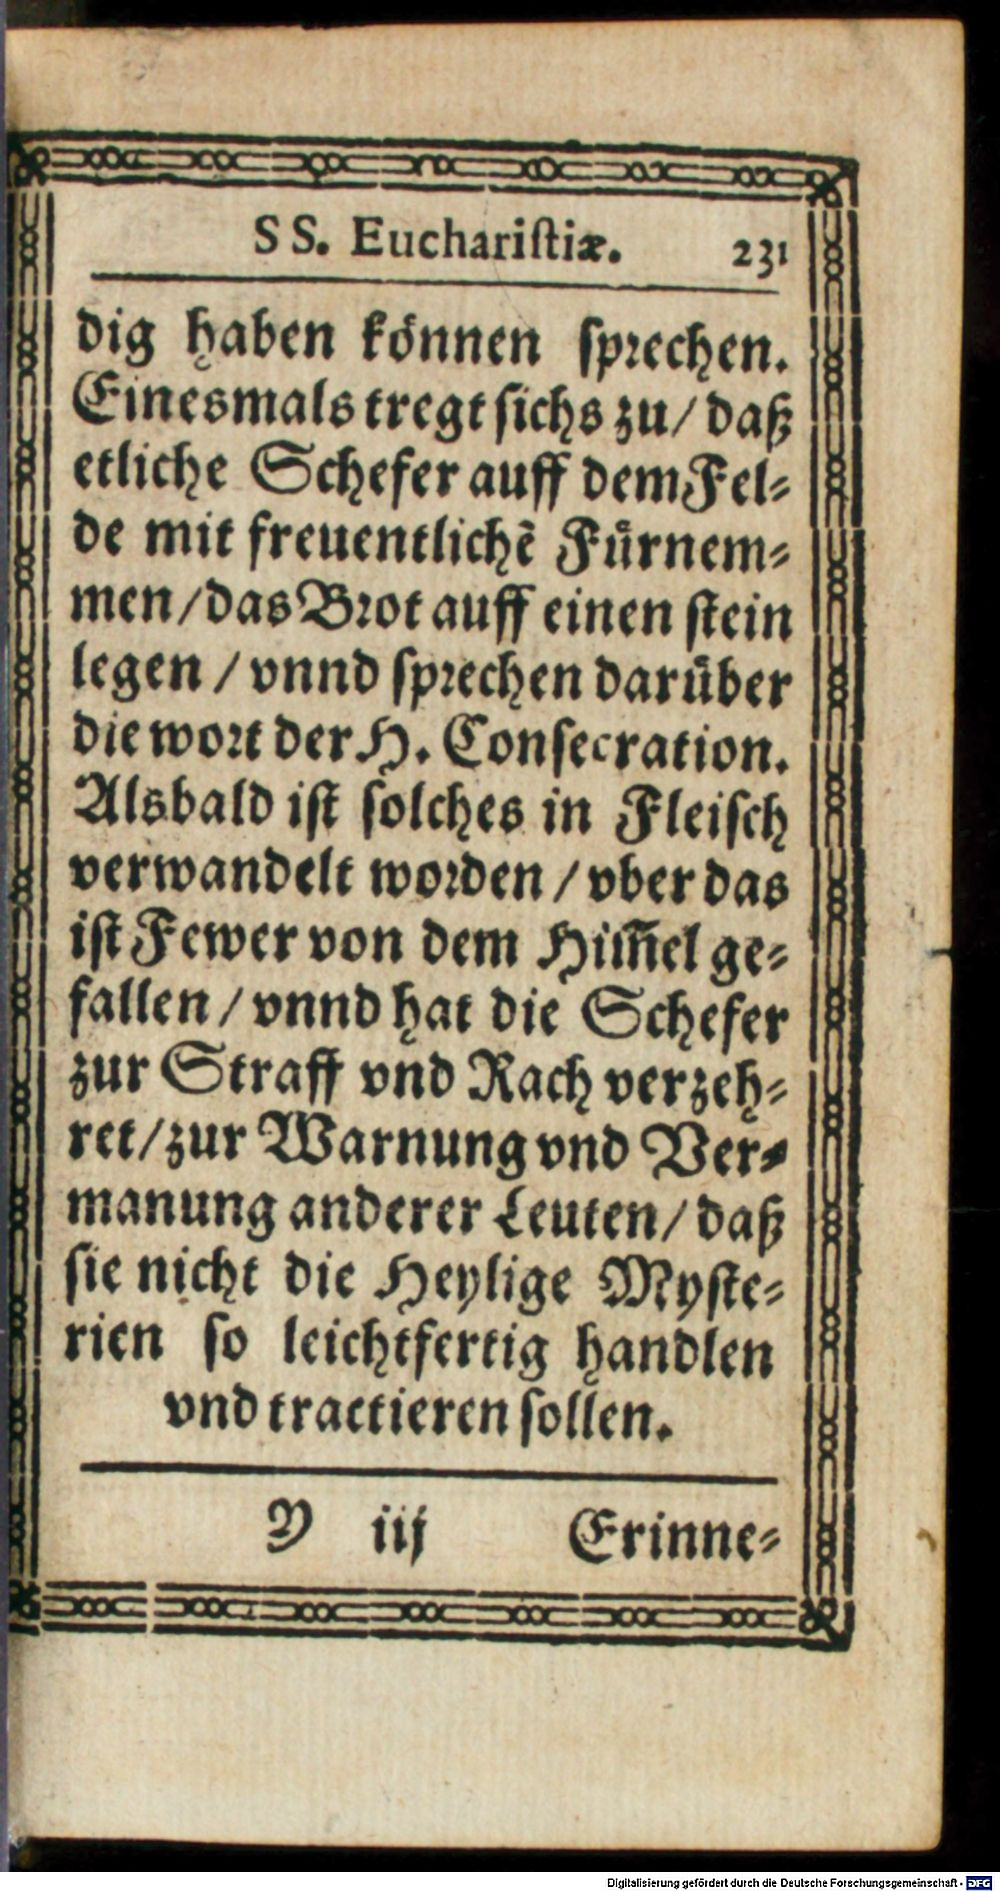 SS. Euchariſtiæ. 231
dig haben können ſprechen.
Einesmals tregt ſichs zu / daß
etliche Schefer auff dem Fel⸗
de mit freuentlichē Fuͤrnem⸗
men / das Brot auff einen ſtein
legen / vnnd ſprechen daruͤber
die wort der H. Conſecration.
Alsbald iſt ſolches in Fleiſch
verwandelt worden / vber das
iſt Fewer von dem Him̃el ge⸗
fallen / vnnd hat die Schefer
zur Straff vnd Rach verzeh⸗
ret / zur Warnung vnd Ver⸗
manung anderer Leuten / daß
ſie nicht die Heylige Myſte⸗
rien ſo leichtfertig handlen
vnd tractieren ſollen.
Y iij Erinne⸗
Digitalisierung gefördert durch die Deutsche Forschungsgemeinschaft - DFG